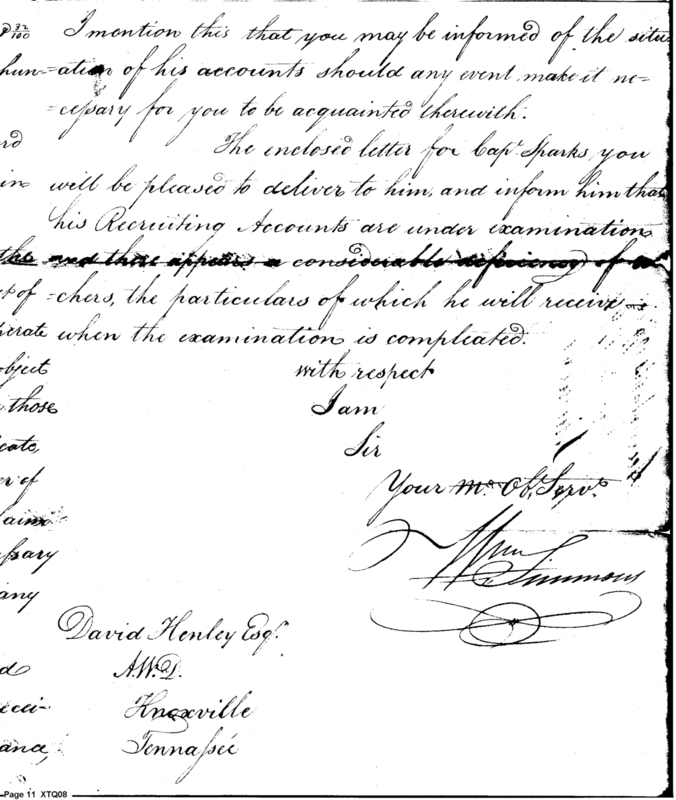 I mention this that you may be informed of the situ-
=ation of his accounts should any event make it ne=
=cessary for you to be acquainted therewith.
The enclosed letter for Capt. Sparks, you
will be pleased to deliver to him, and inform him that
his Recruiting Accounts are under examination
and there appears a considerable deficiency of
=chers, the particulars of which he will receive
when the examination is compleated.
with respect
I am
Sir
Your mo. Ob. Servt.
Wm Simmons
David Henley Esqr.
A.W.D.
Knoxville
Tennassee
32/100
hun=
rd
in
the
of
perate
object
those
cate,
er of
laim
ssary
any
d
ecei-
ance,
Page 11 XTQ08